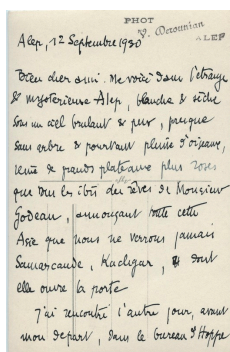 PHOT
V. Derounian
ALEP
Alep, 12 Septembre 1930
Bien cher ami. Me voici dans l'étrange
& mystérieuse Alep, blanche & sèche
sous un ciel brulant & pur, presque
sans arbre & pourtant pleine d'oiseaux,
de grands plateaux plus roses
que tous les ibis des rêves de Monsieur
Godeau, annonçant toute cette
Asie que nous ne verrons jamais
Samarcande, Kachgar, & dont
elle ouvre la porte
J'ai rencontré l'autre jour, avant
mon départ, dans le bureau d'Hoppe